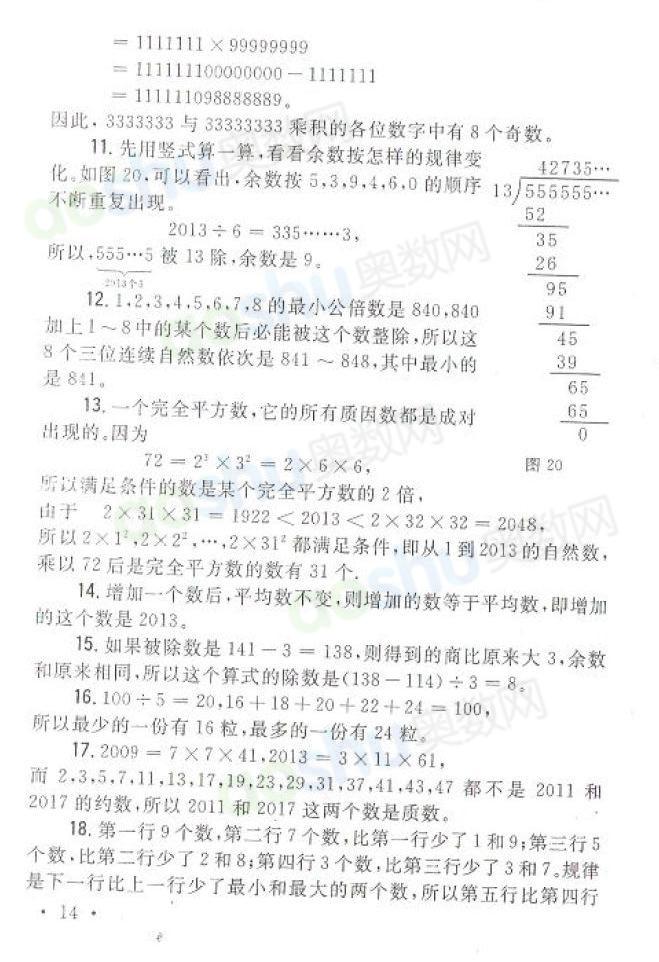 = 1111111 × 99999999
= 111111100000000 − 1111111
= 111111098888889。
因此,3333333 与 33333333 乘积的各位数字中有 8 个奇数。
11. 先用竖式算一算,看看余数按怎样的规律变
化。如图 20,可以看出,余数按 5,3,9,4,6,0 的顺序
不断重复出现。
2013 ÷ 6 = 335……3,
所以,555…5 被 13 除,余数是 9。
2013个5
12. 1,2,3,4,5,6,7,8 的最小公倍数是 840,840
加上 1 ～ 8 中的某个数后必能被这个数整除,所以这
8 个三位连续自然数依次是 841 ～ 848,其中最小的
是 841。
13. 一个完全平方数,它的所有质因数都是成对
出现的。因为
72 = 2³ × 3² = 2 × 6 × 6,
所以满足条件的数是某个完全平方数的 2 倍,
由于 2 × 31 × 31 = 1922 < 2013 < 2 × 32 × 32 = 2048,
所以 2 × 1²,2 × 2²,…,2 × 31² 都满足条件,即从 1 到 2013 的自然数,
乘以 72 后是完全平方数的数有 31 个.
42735…
13/555555…
52
35
26
95
91
45
39
65
65
0
图 20
14. 增加一个数后,平均数不变,则增加的数等于平均数,即增加
的这个数是 2013。
15. 如果被除数是 141 − 3 = 138,则得到的商比原来大 3,余数
和原来相同,所以这个算式的除数是(138 − 114) ÷ 3 = 8。
16. 100 ÷ 5 = 20,16 + 18 + 20 + 22 + 24 = 100,
所以最少的一份有 16 粒,最多的一份有 24 粒。
17. 2009 = 7 × 7 × 41,2013 = 3 × 11 × 61,
而 2,3,5,7,11,13,17,19,23,29,31,37,41,43,47 都不是 2011 和
2017 的约数,所以 2011 和 2017 这两个数是质数。
18. 第一行 9 个数,第二行 7 个数,比第一行少了 1 和 9;第三行 5
个数,比第二行少了 2 和 8;第四行 3 个数,比第三行少了 3 和 7。规律
是下一行比上一行少了最小和最大的两个数,所以第五行比第四行
· 14 ·
aoshu奥数网